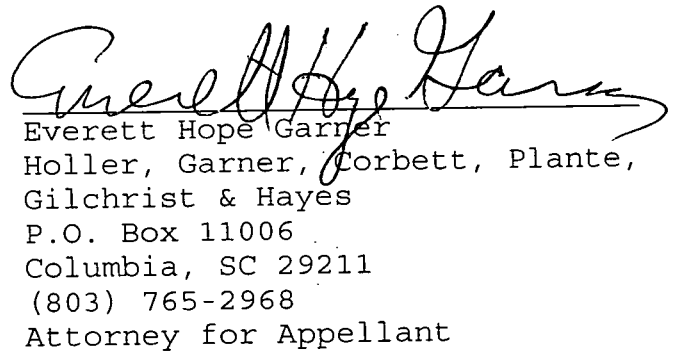 Everett Hope Garner
Everett Hope Garner
Holler, Garner, Corbett, Plante,
Gilchrist & Hayes
P.O. Box 11006
Columbia, SC 29211
(803) 765-2968
Attorney for Appellant